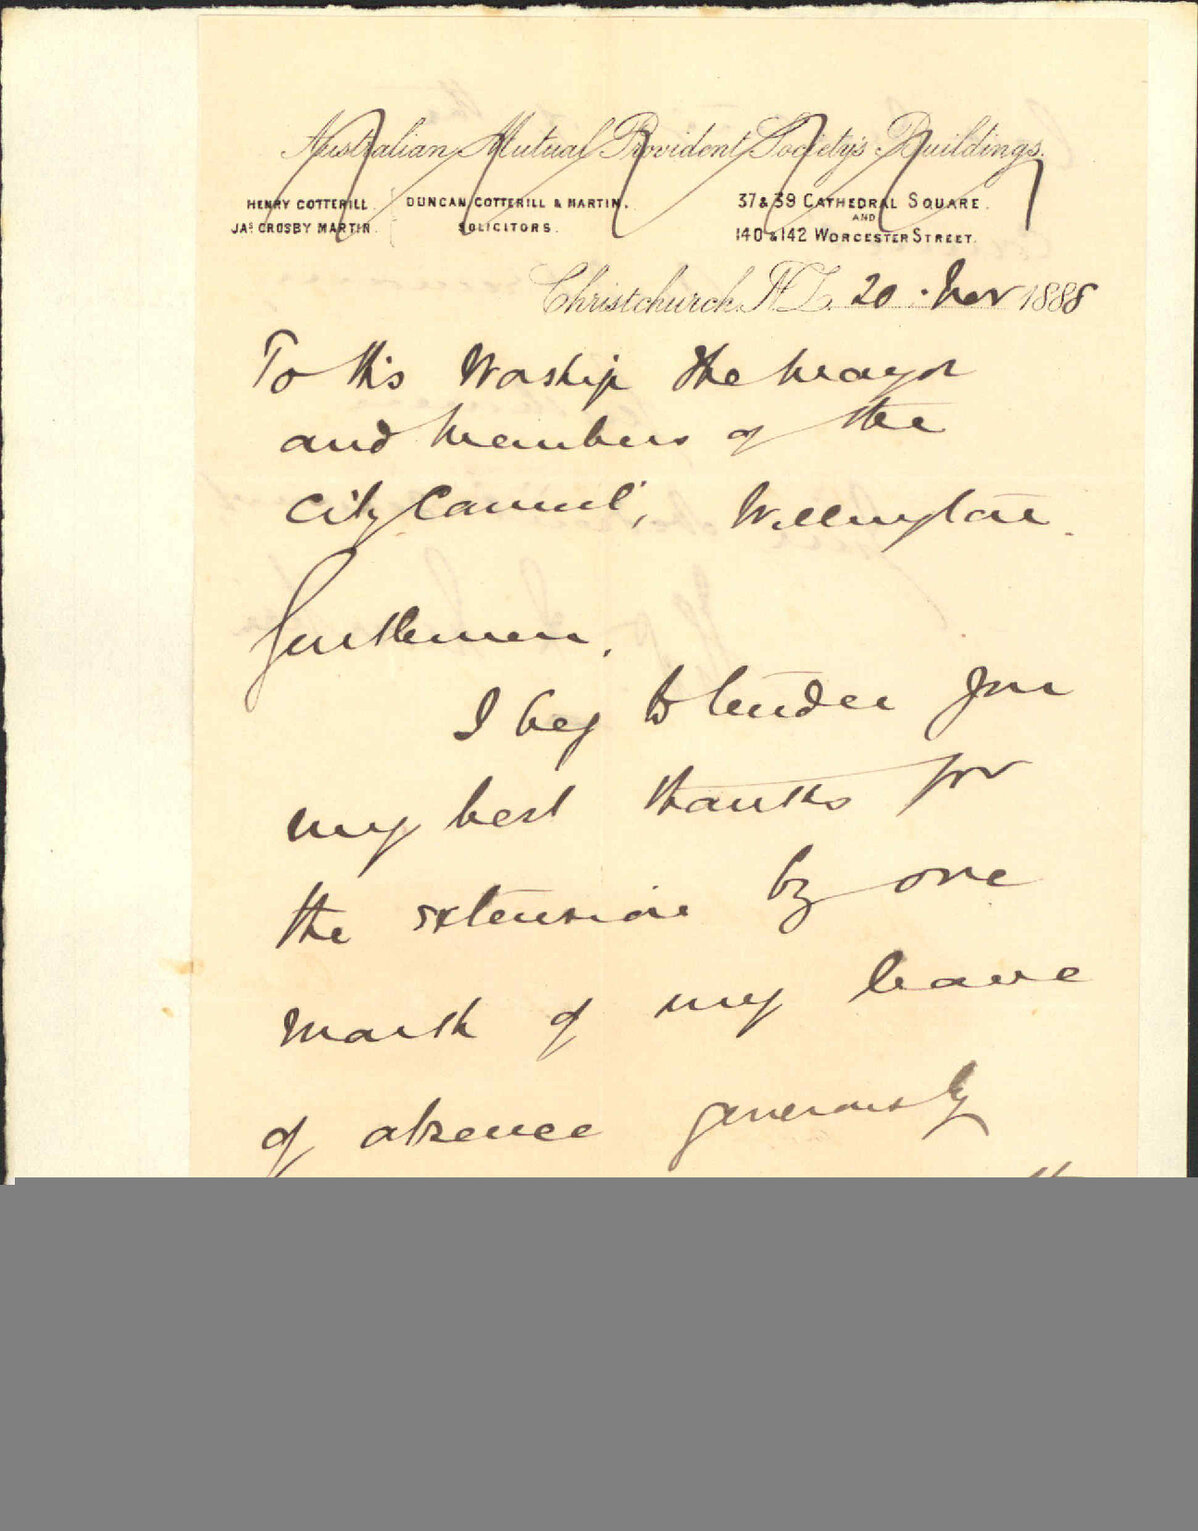 Australian Mutual Provident Society's Buildings.
HENRY COTTERILL.
JAS CROSBY MARTIN.
DUNCAN COTTERILL & MARTIN.
SOLICITORS.
37 & 39 CATHEDRAL SQUARE.
AND
140 & 142 WORCESTER STREET.
Christchurch. N.Z. 20 · Nov 1888
To His Worship The Mayor
and Members of the
City Council, Wellington.
Gentlemen.
I beg to tender you
my best thanks for
the extension by one
month of my leave
of absence generously